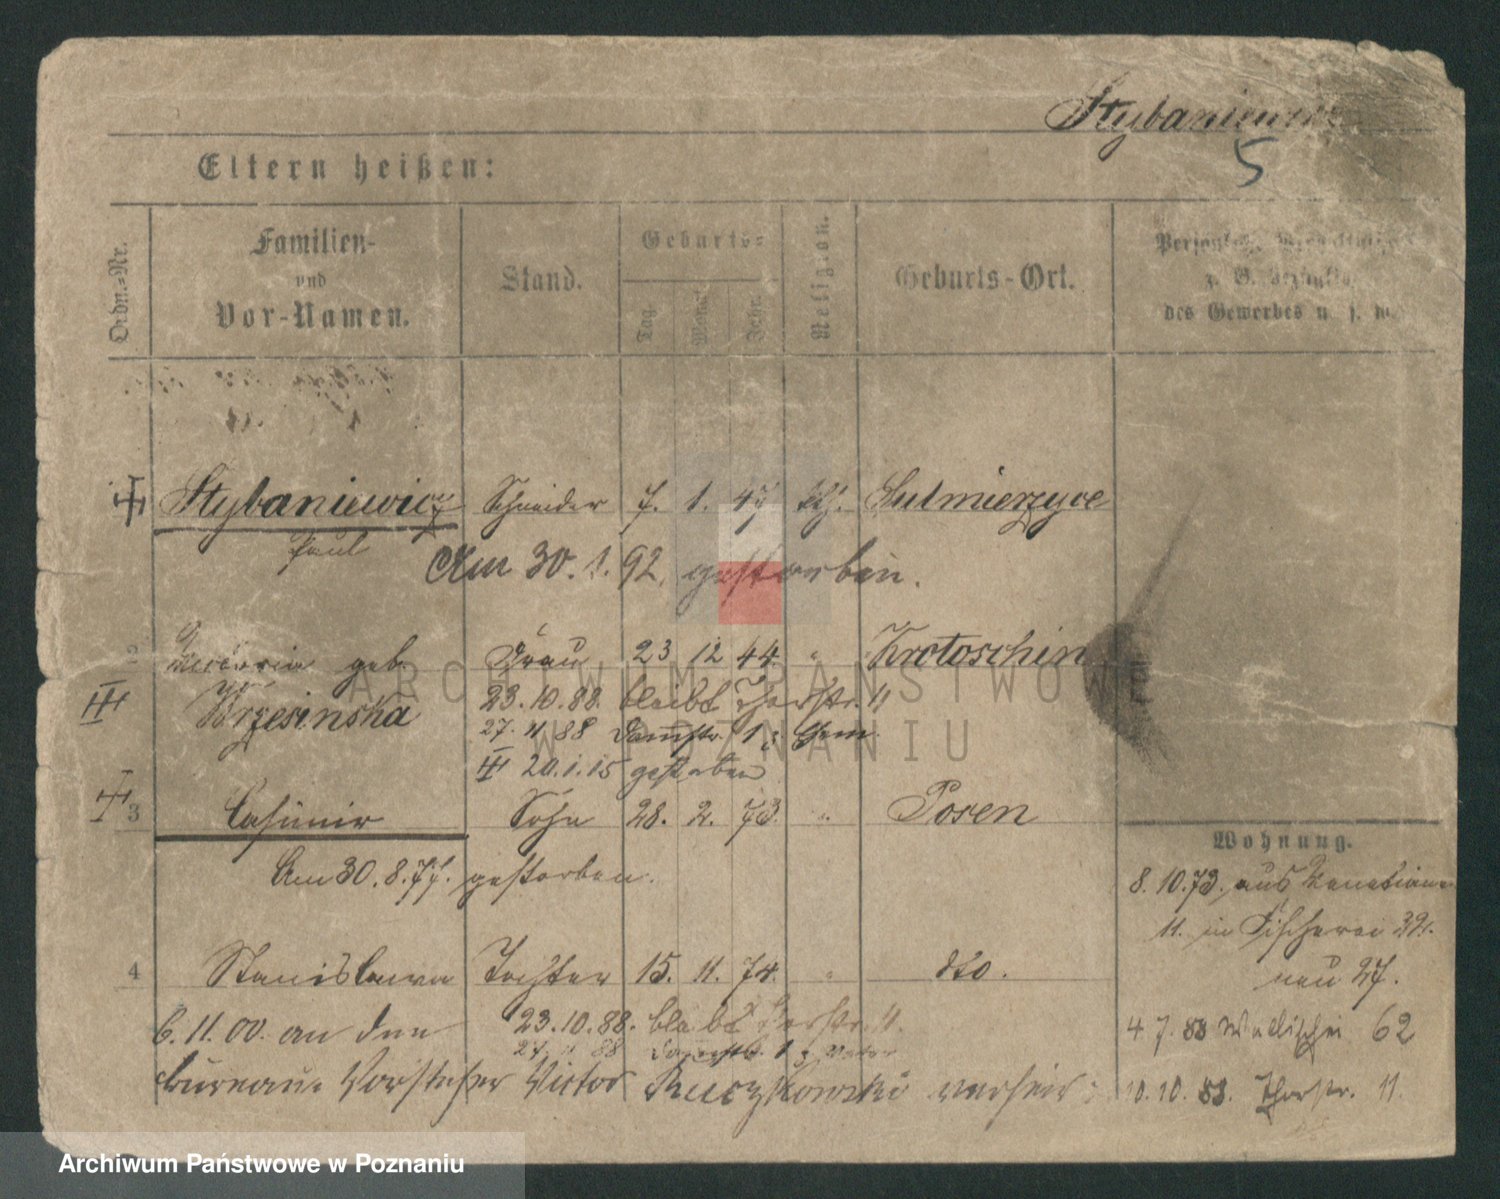 Stybaniewicz
5
Eltern heißen:
Ordn.-Nr.
Familien-
und
Vor-Namen.
Stand.
Geburts-
Tag.
Monat
Jahr.
Religion.
Geburts-Ort.
des Gewerbes u. s. w.
Stybaniewicz Schneider 7. 1. 47 kth. Sulmierzyce
Paul
Am 30.1.92. gestorben.
geb. Frau 23 12 44. " Krotoschin
Brzesinska 23.10.88. bleibt Thorstr. 11
27. 11 88 Dammstr. 1
20.1.15 gestorben
3 Casimir Sohn 28. 2. 73. " Posen
Am 30.8.77. gestorben.
4 Stanislawa Tochter 15. 11. 74. " dto.
6.11.00. an den 23.10.88. bleibt Thorstr. 11.
27. 11 88 Dammstr. 1
bureau-Vorsteher Victor verheir:
Wohnung.
8.10.73. aus Venetianer
11. in Fischerei 32.
neu 27.
4 7. 83 Wallischei 62
10.10.88. Thorstr. 11.
ARCHIWUM PAŃSTWOWE
W POZNANIU
Archiwum Państwowe w Poznaniu